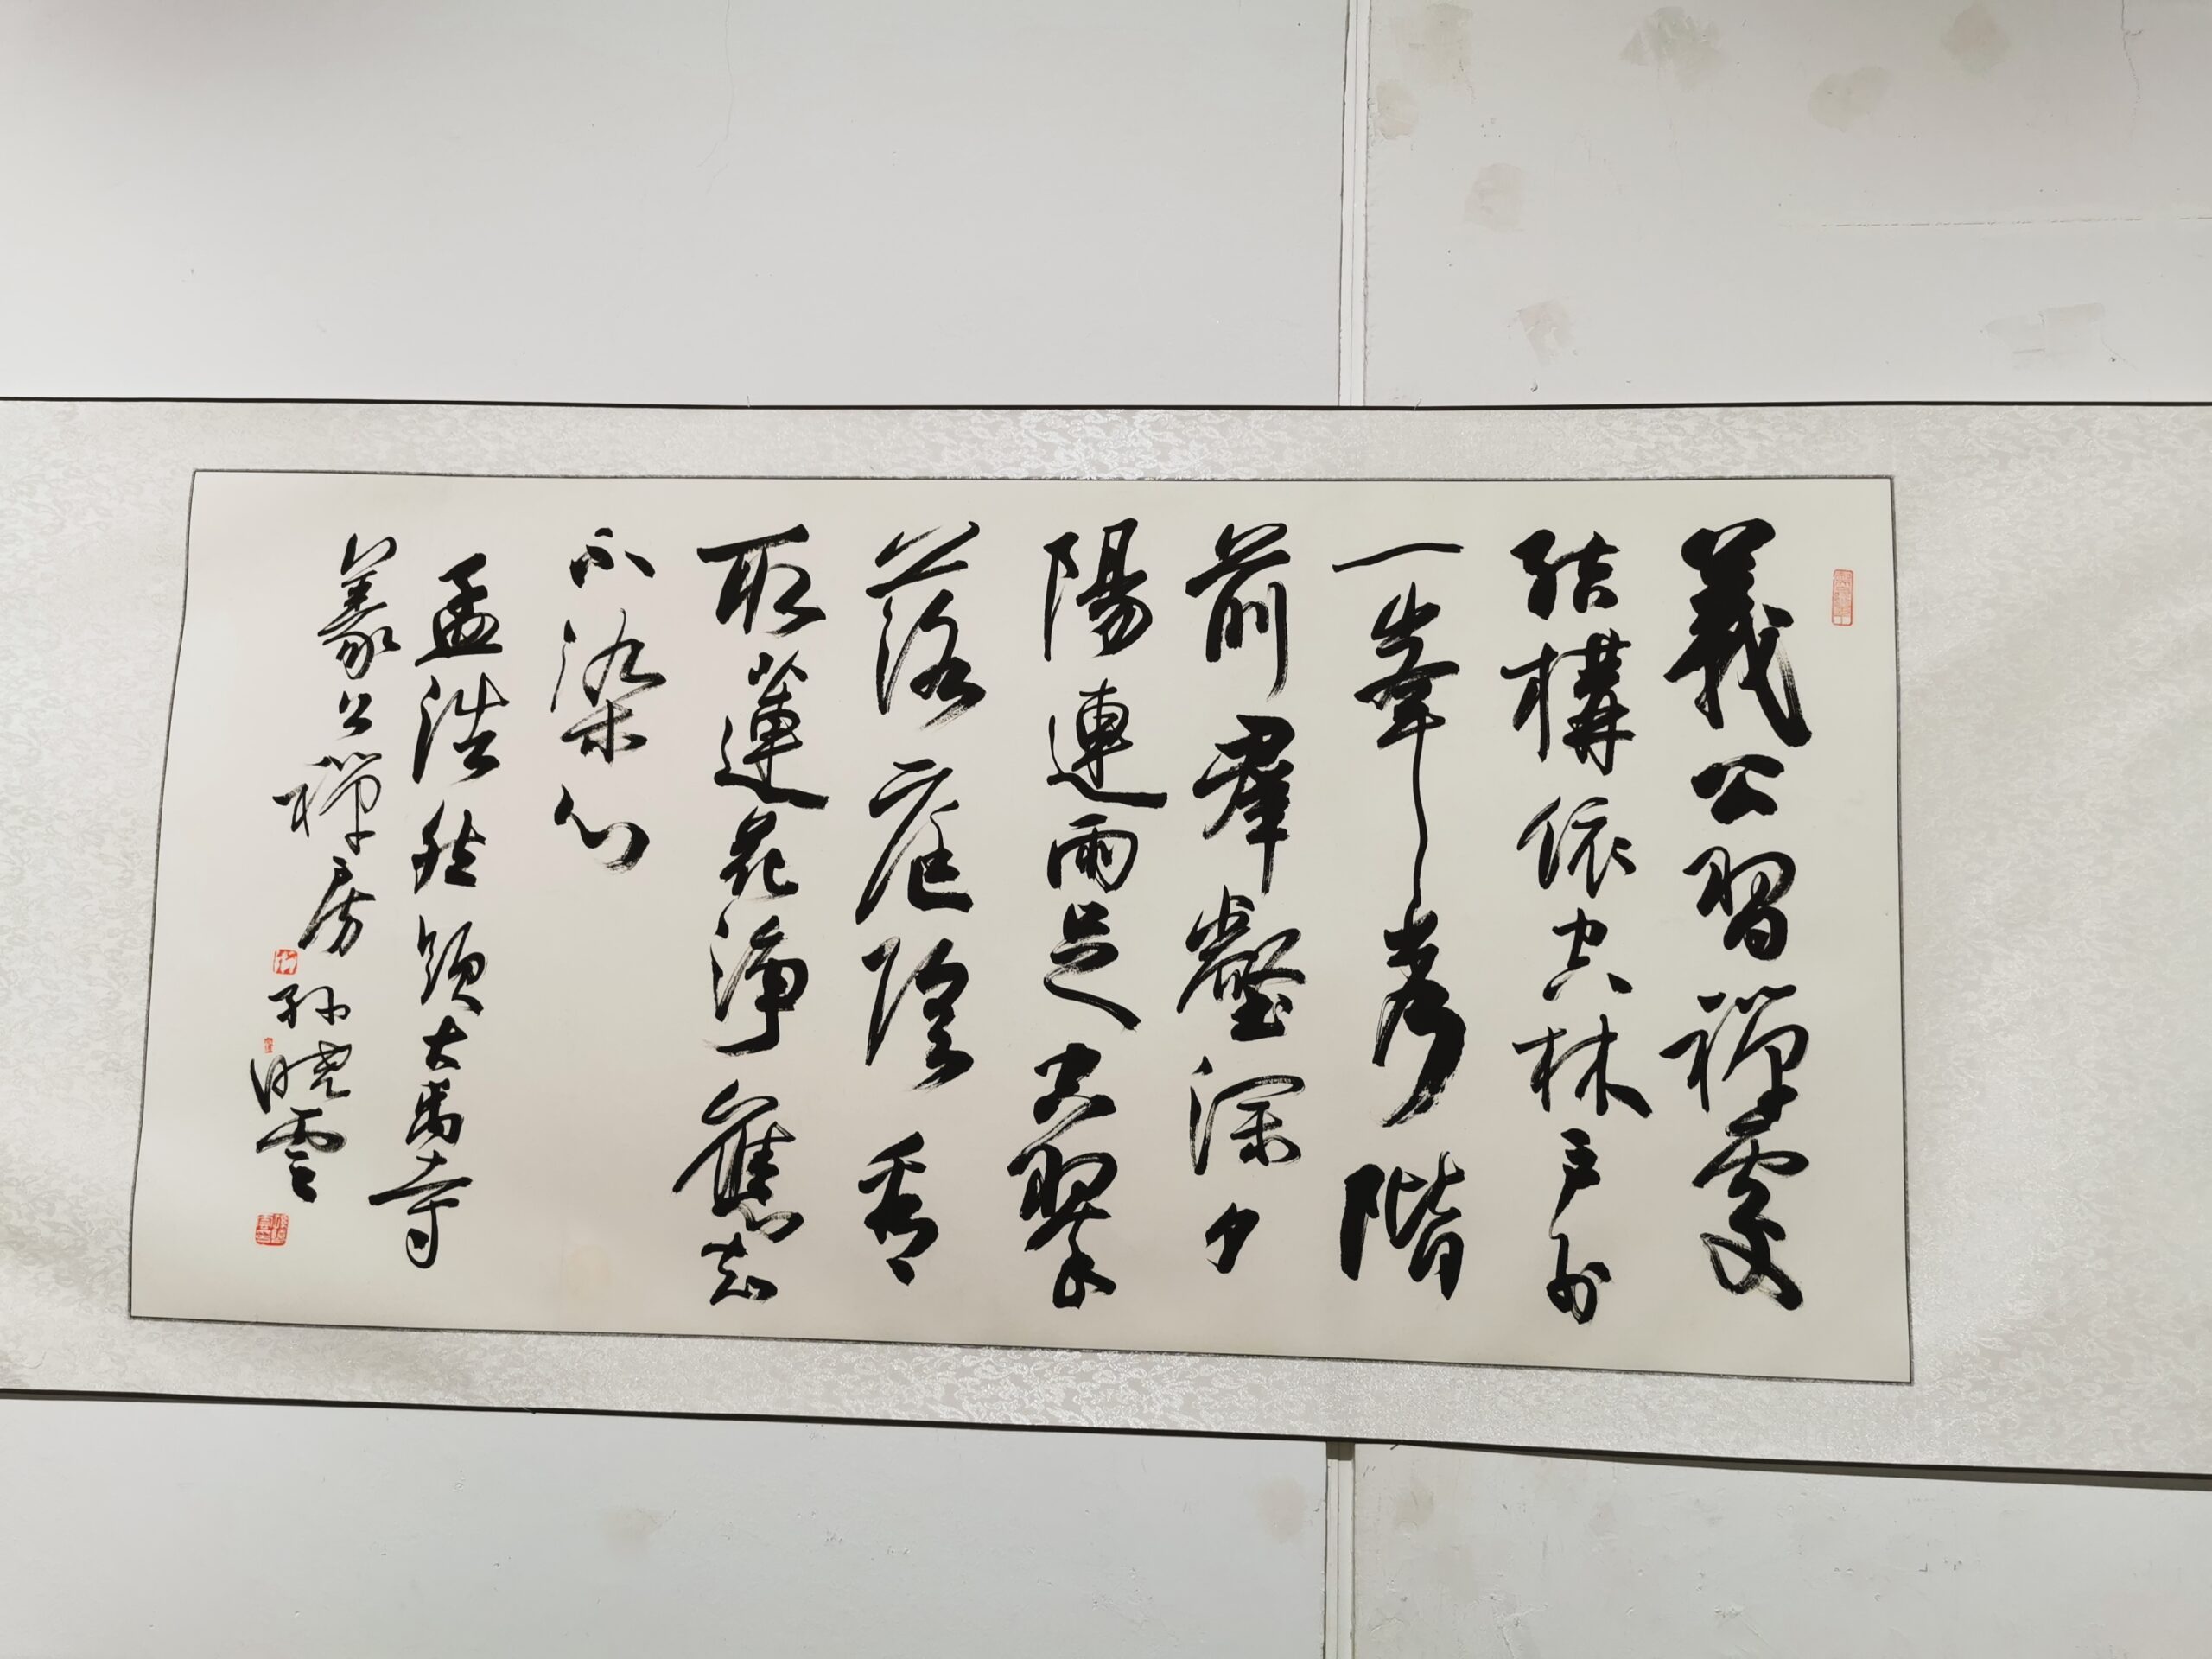 義公習禪處
結構依空林戶外
一峯秀階
前羣壑深夕
陽連雨足空翠
落庭陰看
取蓮花淨應知
不染心
孟浩然題大禹寺
義公禪房 孫曉雲